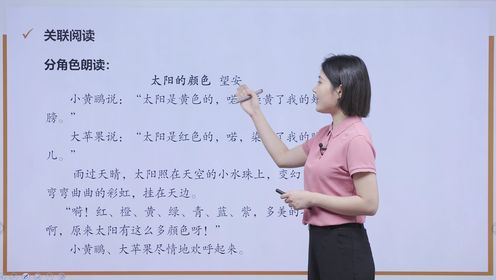 关联阅读
分角色朗读：
太阳的颜色 望安
小黄鹂说：“太阳是黄色的，喏，染黄了我的
膀。”
大苹果说：“太阳是红色的，喏，染
儿。”
雨过天晴，太阳照在天空的小水珠上，变幻
弯弯曲曲的彩虹，挂在天边。
“嗬！红、橙、黄、绿、青、蓝、紫，多美的
啊，原来太阳有这么多颜色呀！”
小黄鹂、大苹果尽情地欢呼起来。